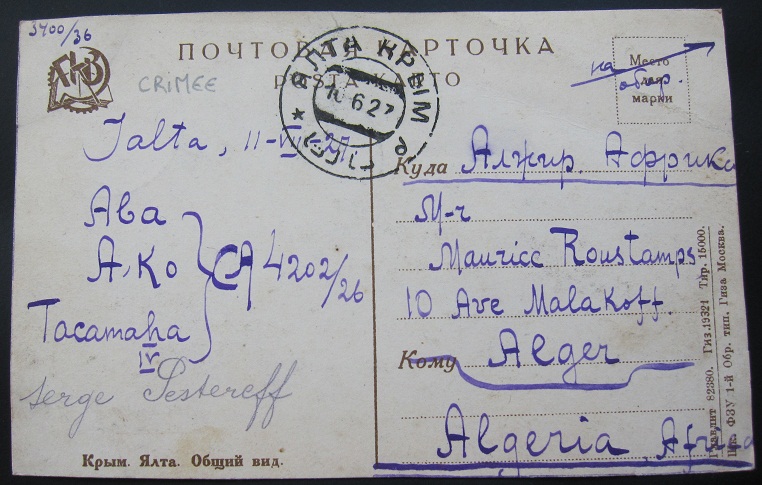 3400/36
ПОЧТОВАЯ КАРТОЧКА
POŜTA KARTO
CRIMEE
ЯЛТА КРЫМ
6 27
Место
для
марки
на
обор.
Jalta, 11-VI-27
Aba
A-Ko
CA 4202/26
Tacamaha
IV
serge Pestereff
Крым. Ялта. Общий вид.
Куда Алжир. Африка
M-r
Maurice Roustamps
10 Ave Malakoff.
Кому Alger
Algeria, Africa
Главлит 82380. Гиз. 19321 Тир. 15000.
Цах ФЗУ 1-й Обр. тип. Гиза Москва.